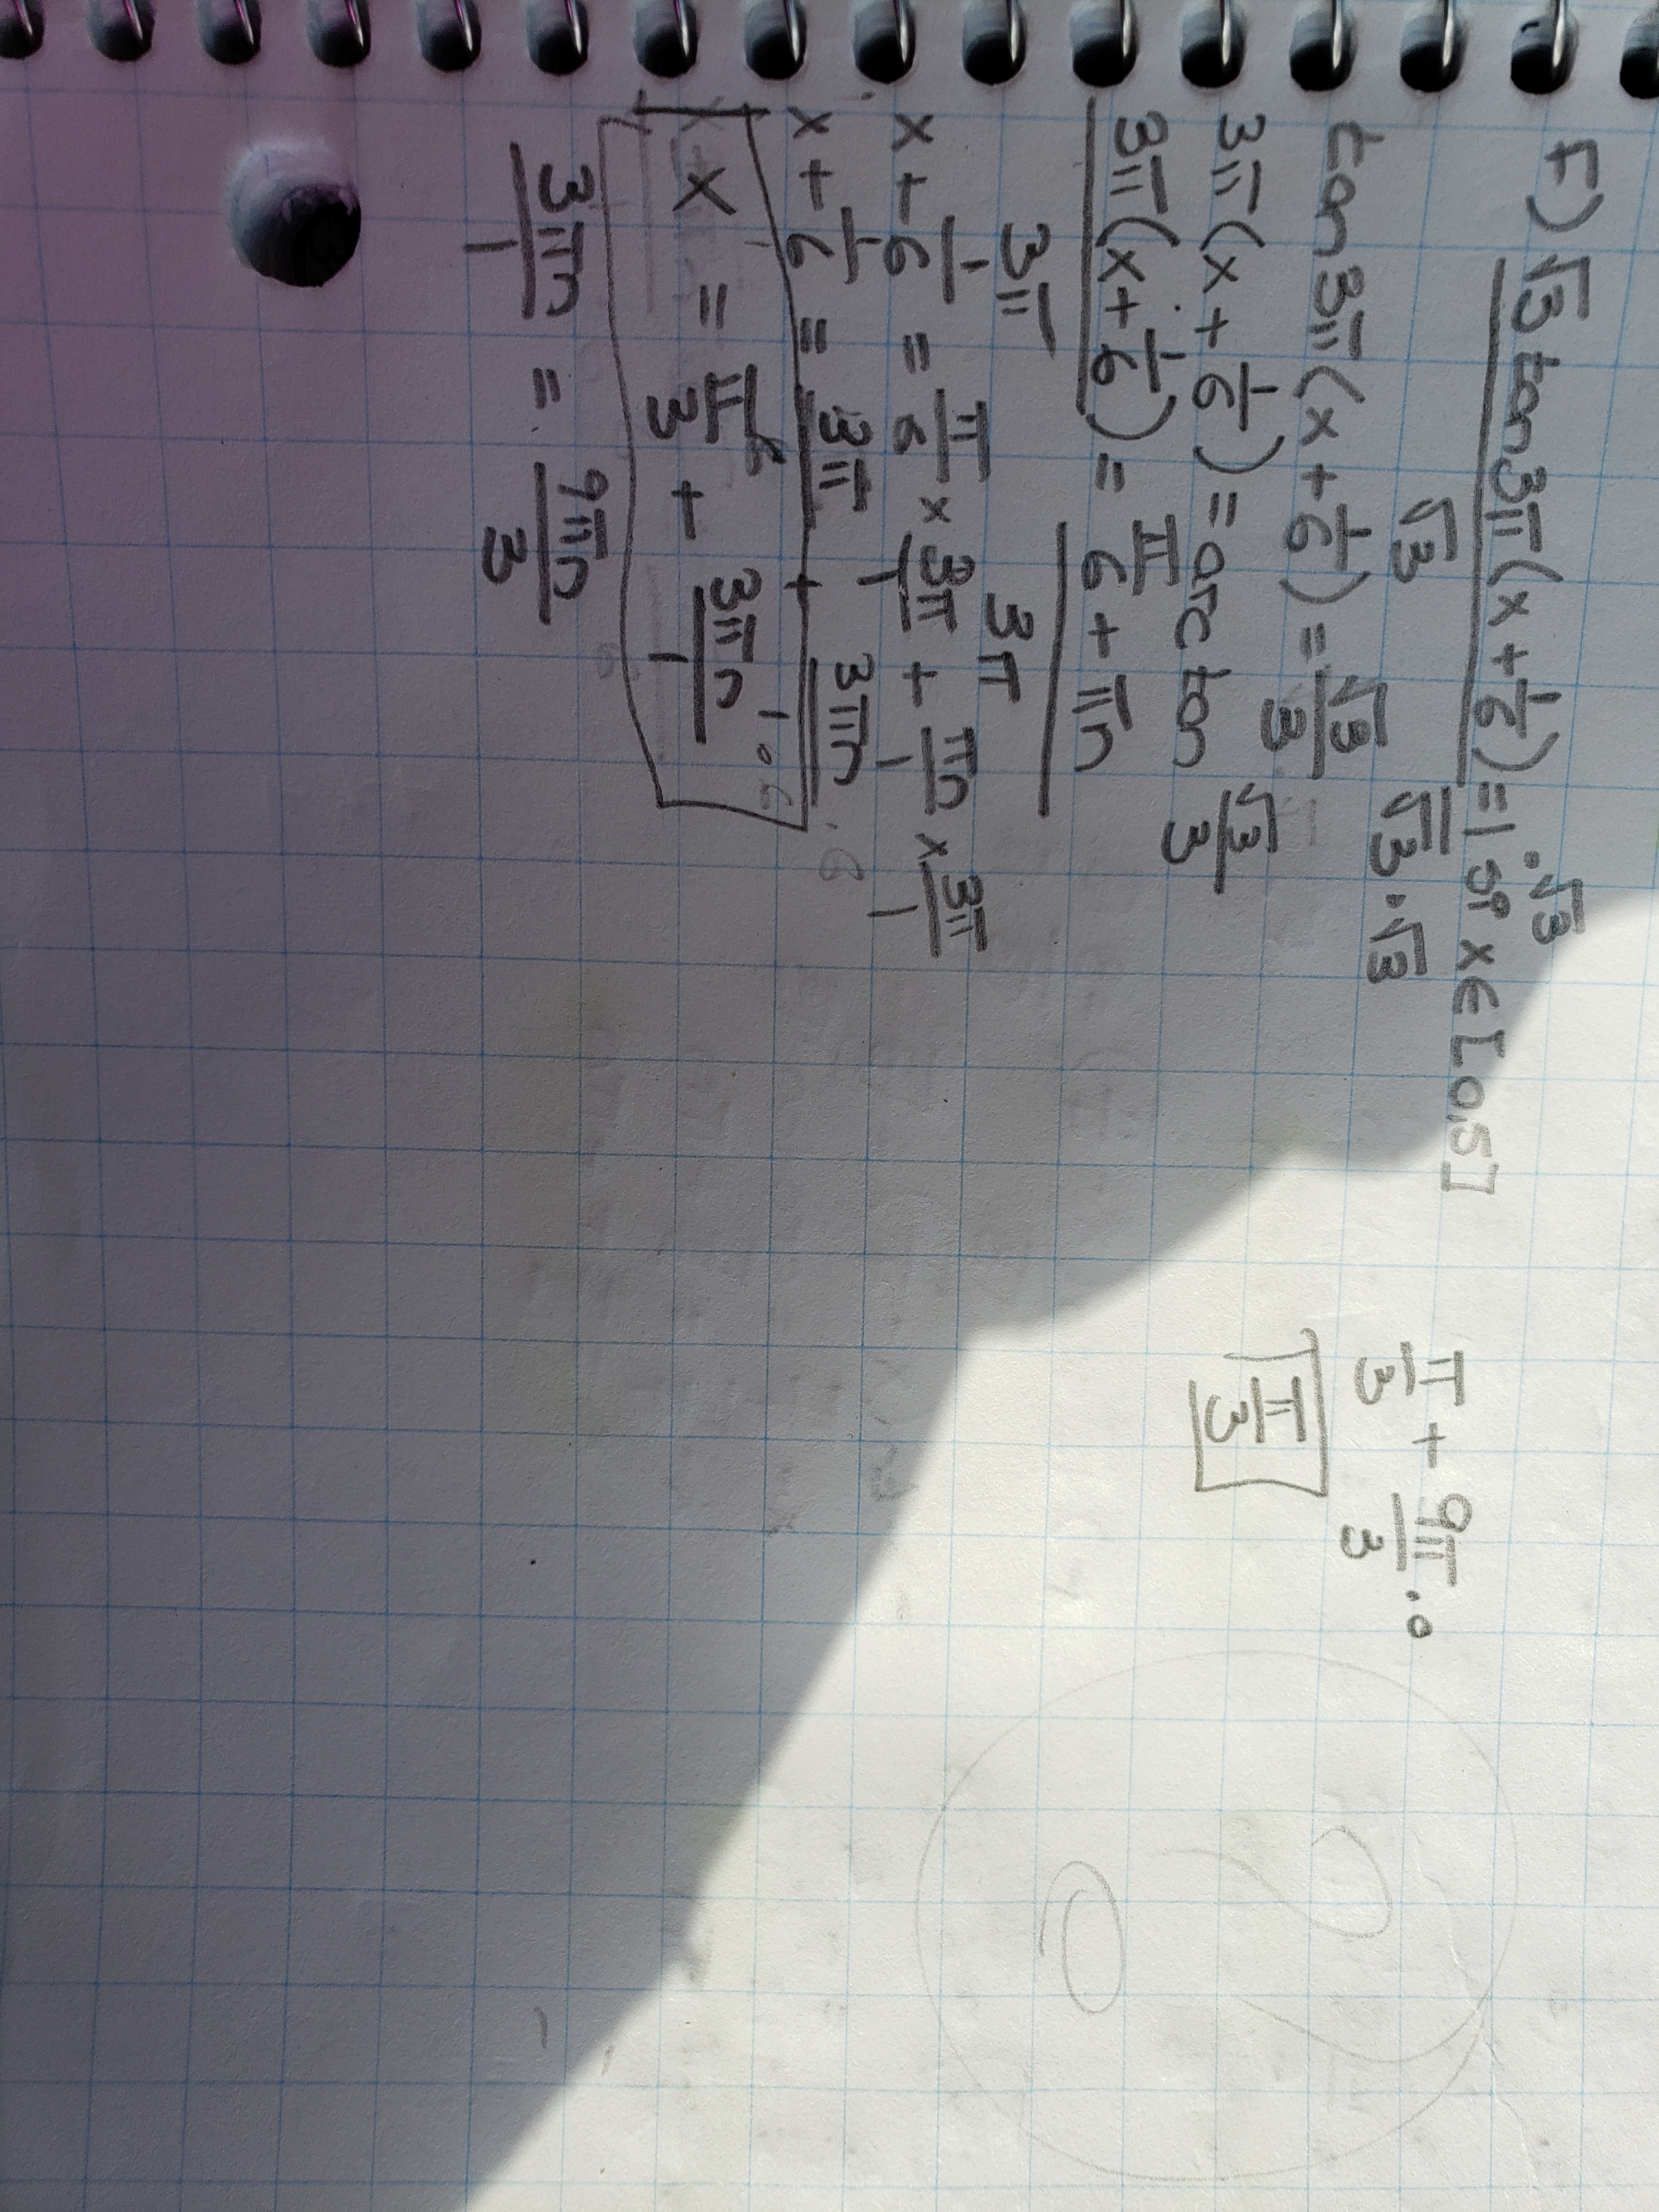 F) √3 tan3π(x+1/6) = 1 si x∈[0,5]
·√3
√3 √3·√3
tan3π(x+1/6) = √3/3
3π(x+1/6) = arc tan √3/3
3π(x+1/6) = π/6 + πn
3π 3π
x+1/6 = π/6 × 3π/1 + πn/1 × 3π/1
x+1/6 = 3π + 3πn
x = π/3 + 3πn/1
3πn/1 = 9πn/3
π/3 + 9π/3 · 0
π/3